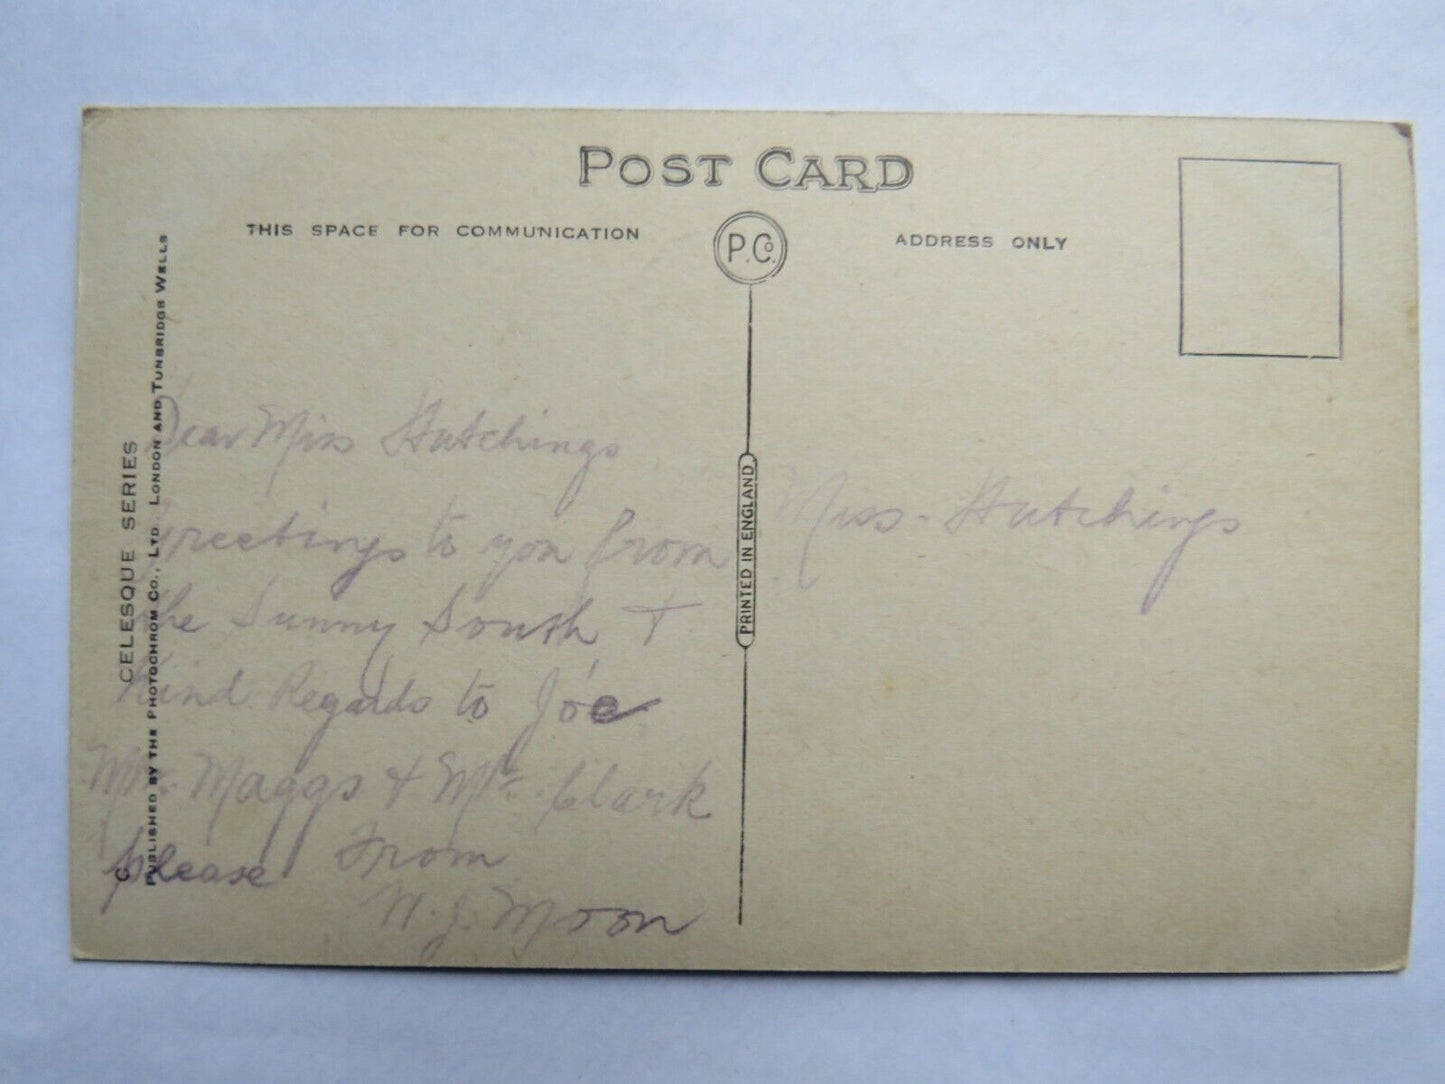 POST CARD
THIS SPACE FOR COMMUNICATION
P.Co.
ADDRESS ONLY
CELESQUE SERIES
C
PUBLISHED BY THE PHOTOCHROM CO., LTD. LONDON AND TUNBRIDGE WELLS
PRINTED IN ENGLAND
Dear Miss Hutchings
Greetings to you from
the Sunny South +
Kind Regards to Joe
Maggs + Mr. Clark
please From
W. J. Moon
Miss - Hutchings